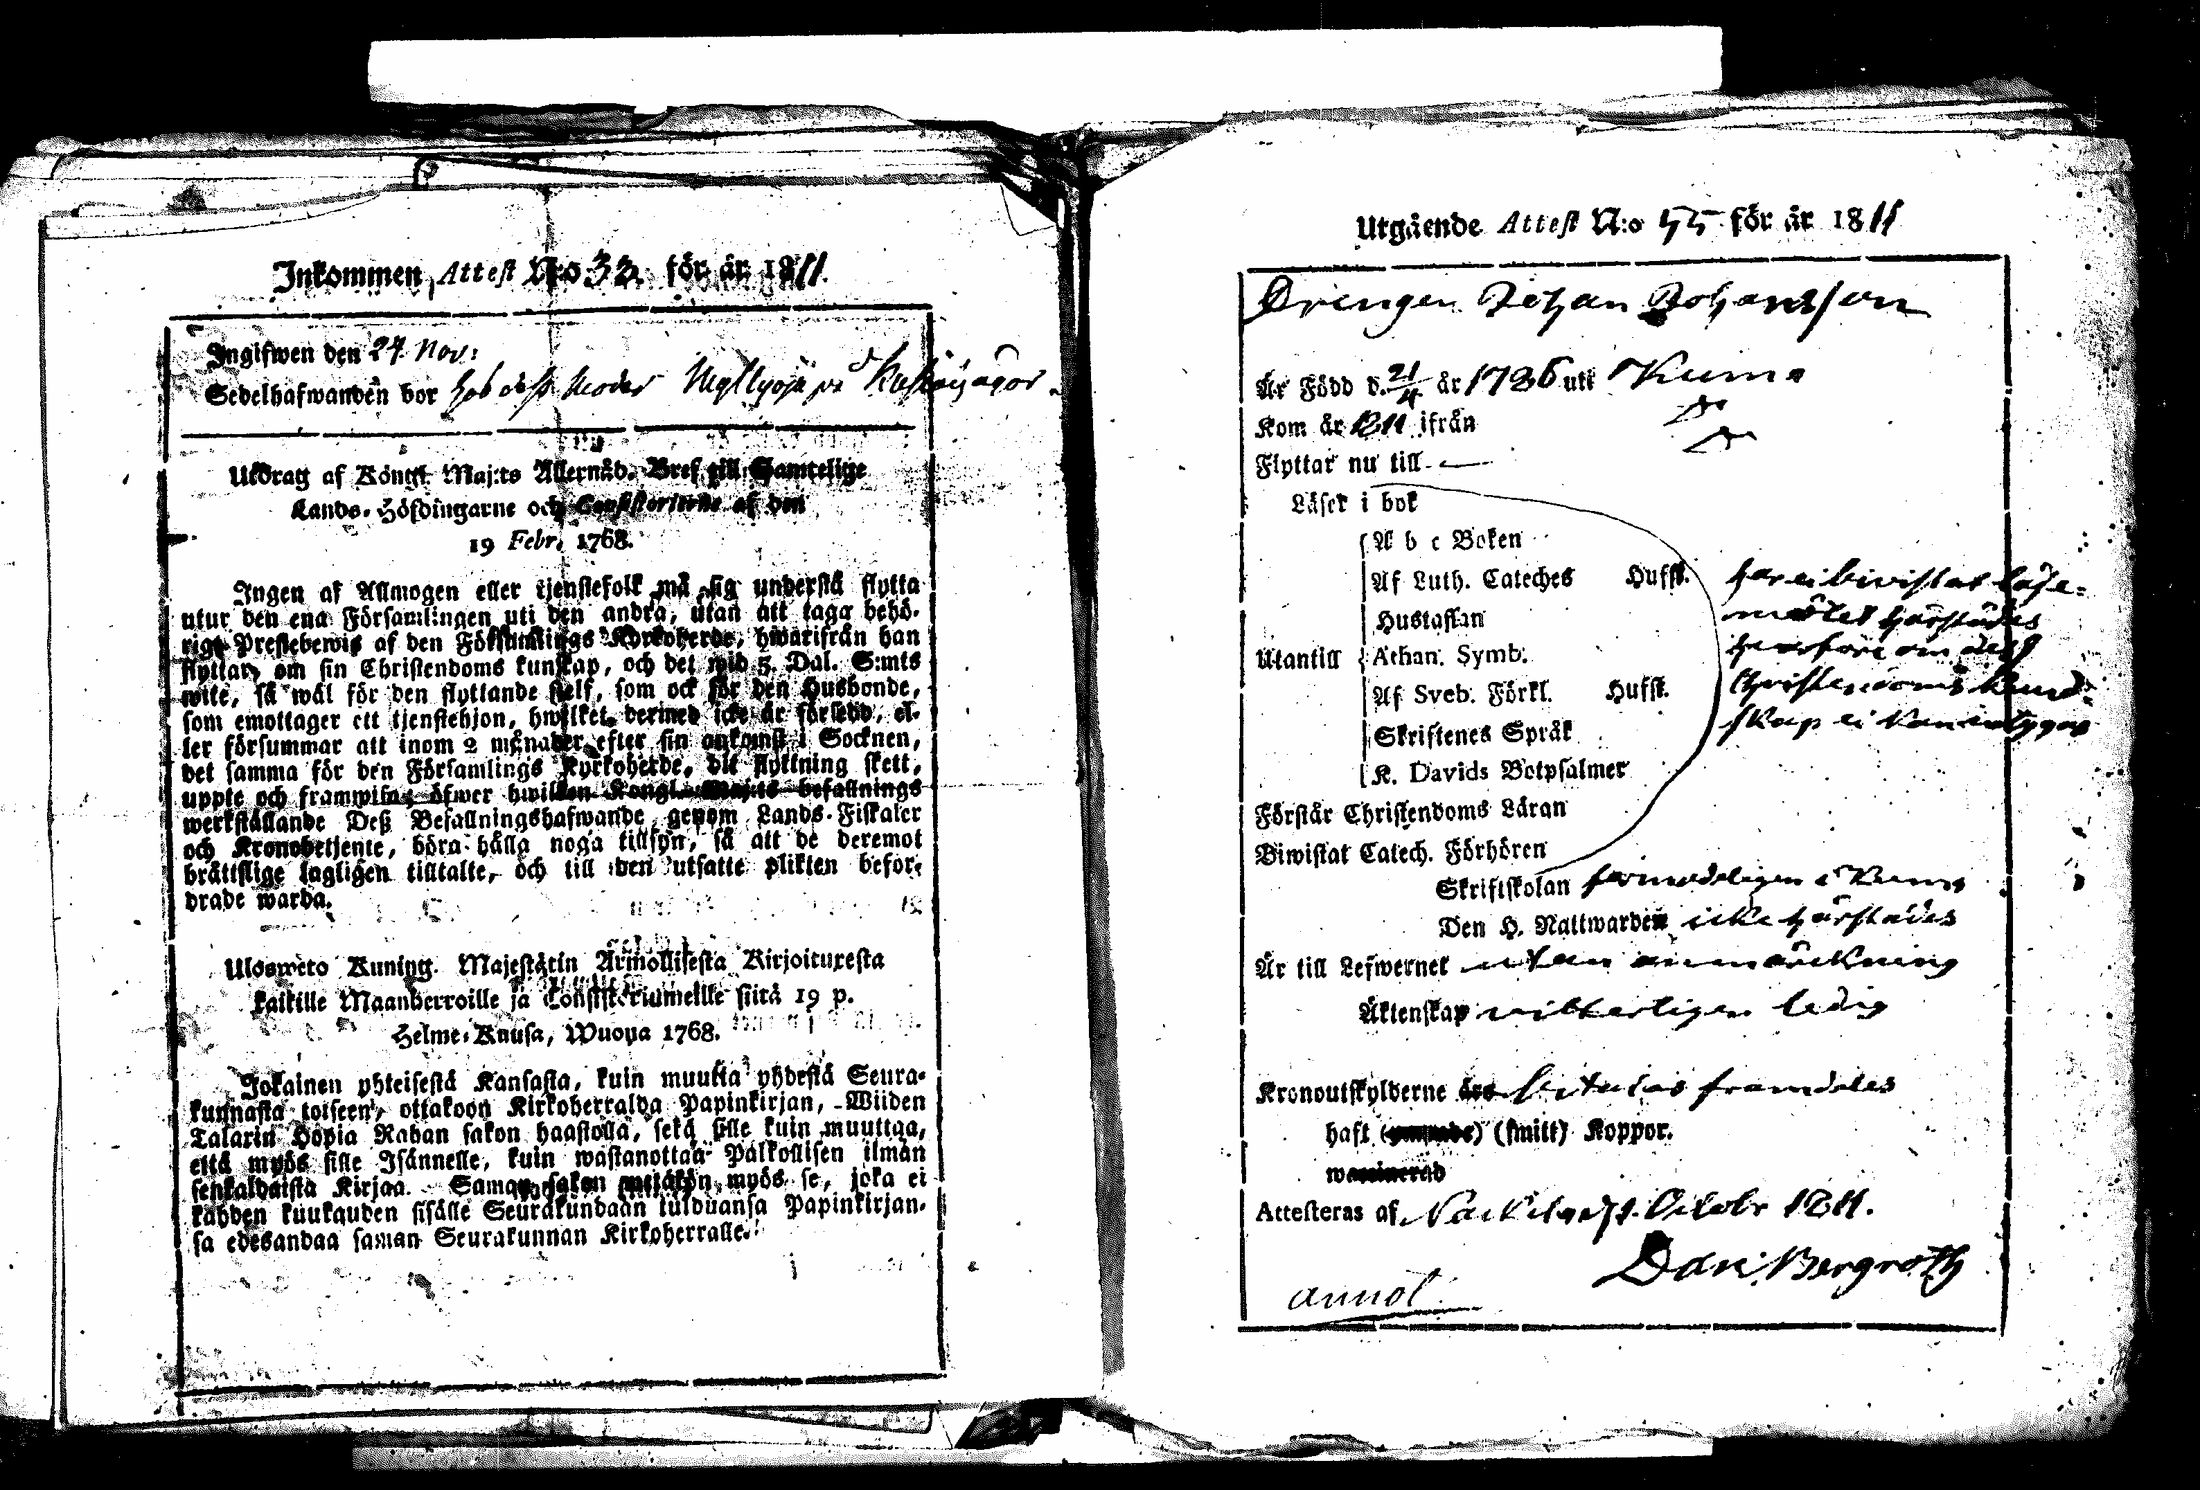 Inkommen Attest N:o 32. för år 1811.
Ingifwen den 24 Nov:
Sedelhafwanden bor hos dess Moder på
Utdrag af Köngl. Maj:ts Allernåd. Bref till Samtelige
Lands-Höfdingarne och Consistorierne af den
19 Febr. 1768.
Ingen af Allmogen eller tjenstefolk må sig understå flytta
utur den ena Församlingen uti den andra, utan att taga behö-
rigt Prestebewis af den Församlings Kyrkoherde, hwarifrån han
flyttar, om sin Christendoms kunskap, och det wid 5. Dal. S:mts
wite, så wäl för den flyttande sjelf, som ock för den Husbonde,
som emottager ett tjenstehjon, hwilket dermed icke är försedd, el-
ler försummar att inom 2 månader efter sin ankomst i Socknen,
det samma för den Församlings Kyrkoherde, dit flyttning skett,
uppte och framwisa; öfwer hwilken Kongl. Maj:ts befallnings
werkställande Deß Befallningshafwande genom Lands-Fiskaler
och Kronobetjente, böra hålla noga tillsyn, så att de deremot
bråttslige lagligen tilltalte, och till den utsatte plikten befor-
drade warda.
Ulosweto Kuning. Majestätin Armollisesta Kirjoituxesta
kaikille Maanherroille ja Consistoriumeille siitä 19 p.
Helme-Kuusa, Wuonna 1768.
Jokainen yhteisestä Kansasta, kuin muutta yhdestä Seura-
kunnasta toiseen, ottakoon Kirkoherralda Papinkirjan, Wiiden
Talarin Hopia Rahan sakon haastolla, sekä sille kuin muuttaa,
että myös sille Isännelle, kuin wastanottaa Palkollisen ilman
senkaldaista Kirjaa. Saman sakon myös se, joka ei
kahden kuukauden sisälle Seurakundaan tulduansa Papinkirjan-
sa edesandaa saman Seurakunnan Kirkoherralle.
Utgående Attest N:o 55 för år 1811
Drengen Johan Johansson
Är Född d. 21/4 år 1786 uti Kumo
Kom år 1811 ifrån
Flyttar nu till
Läser i bok
A b c Boken
Af Luth. Cateches Hufst. har ei bivistat läse-
Hustaflan mötet härstädes
Utantill Athan. Symb. hvarföre om dess
Af Sveb. Förkl. Hufst. Christendoms kund-
Skriftenes Språk skap ei kan intygas
K. Davids Botpsalmer
Förstår Christendoms Läran
Biwistat Catech. Förhören
Skriftskolan förmodeligen i Kumo
Den H. Nattwarden icke härstädes
Är till Lefwernet utan anmärkning
Äktenskap veterligen ledig
Kronoutskylderne betalas framdeles
haft (smitt) Koppor.
Attesteras af Nackila d. Octobr 1811.
Dan: Bergroth
annot.